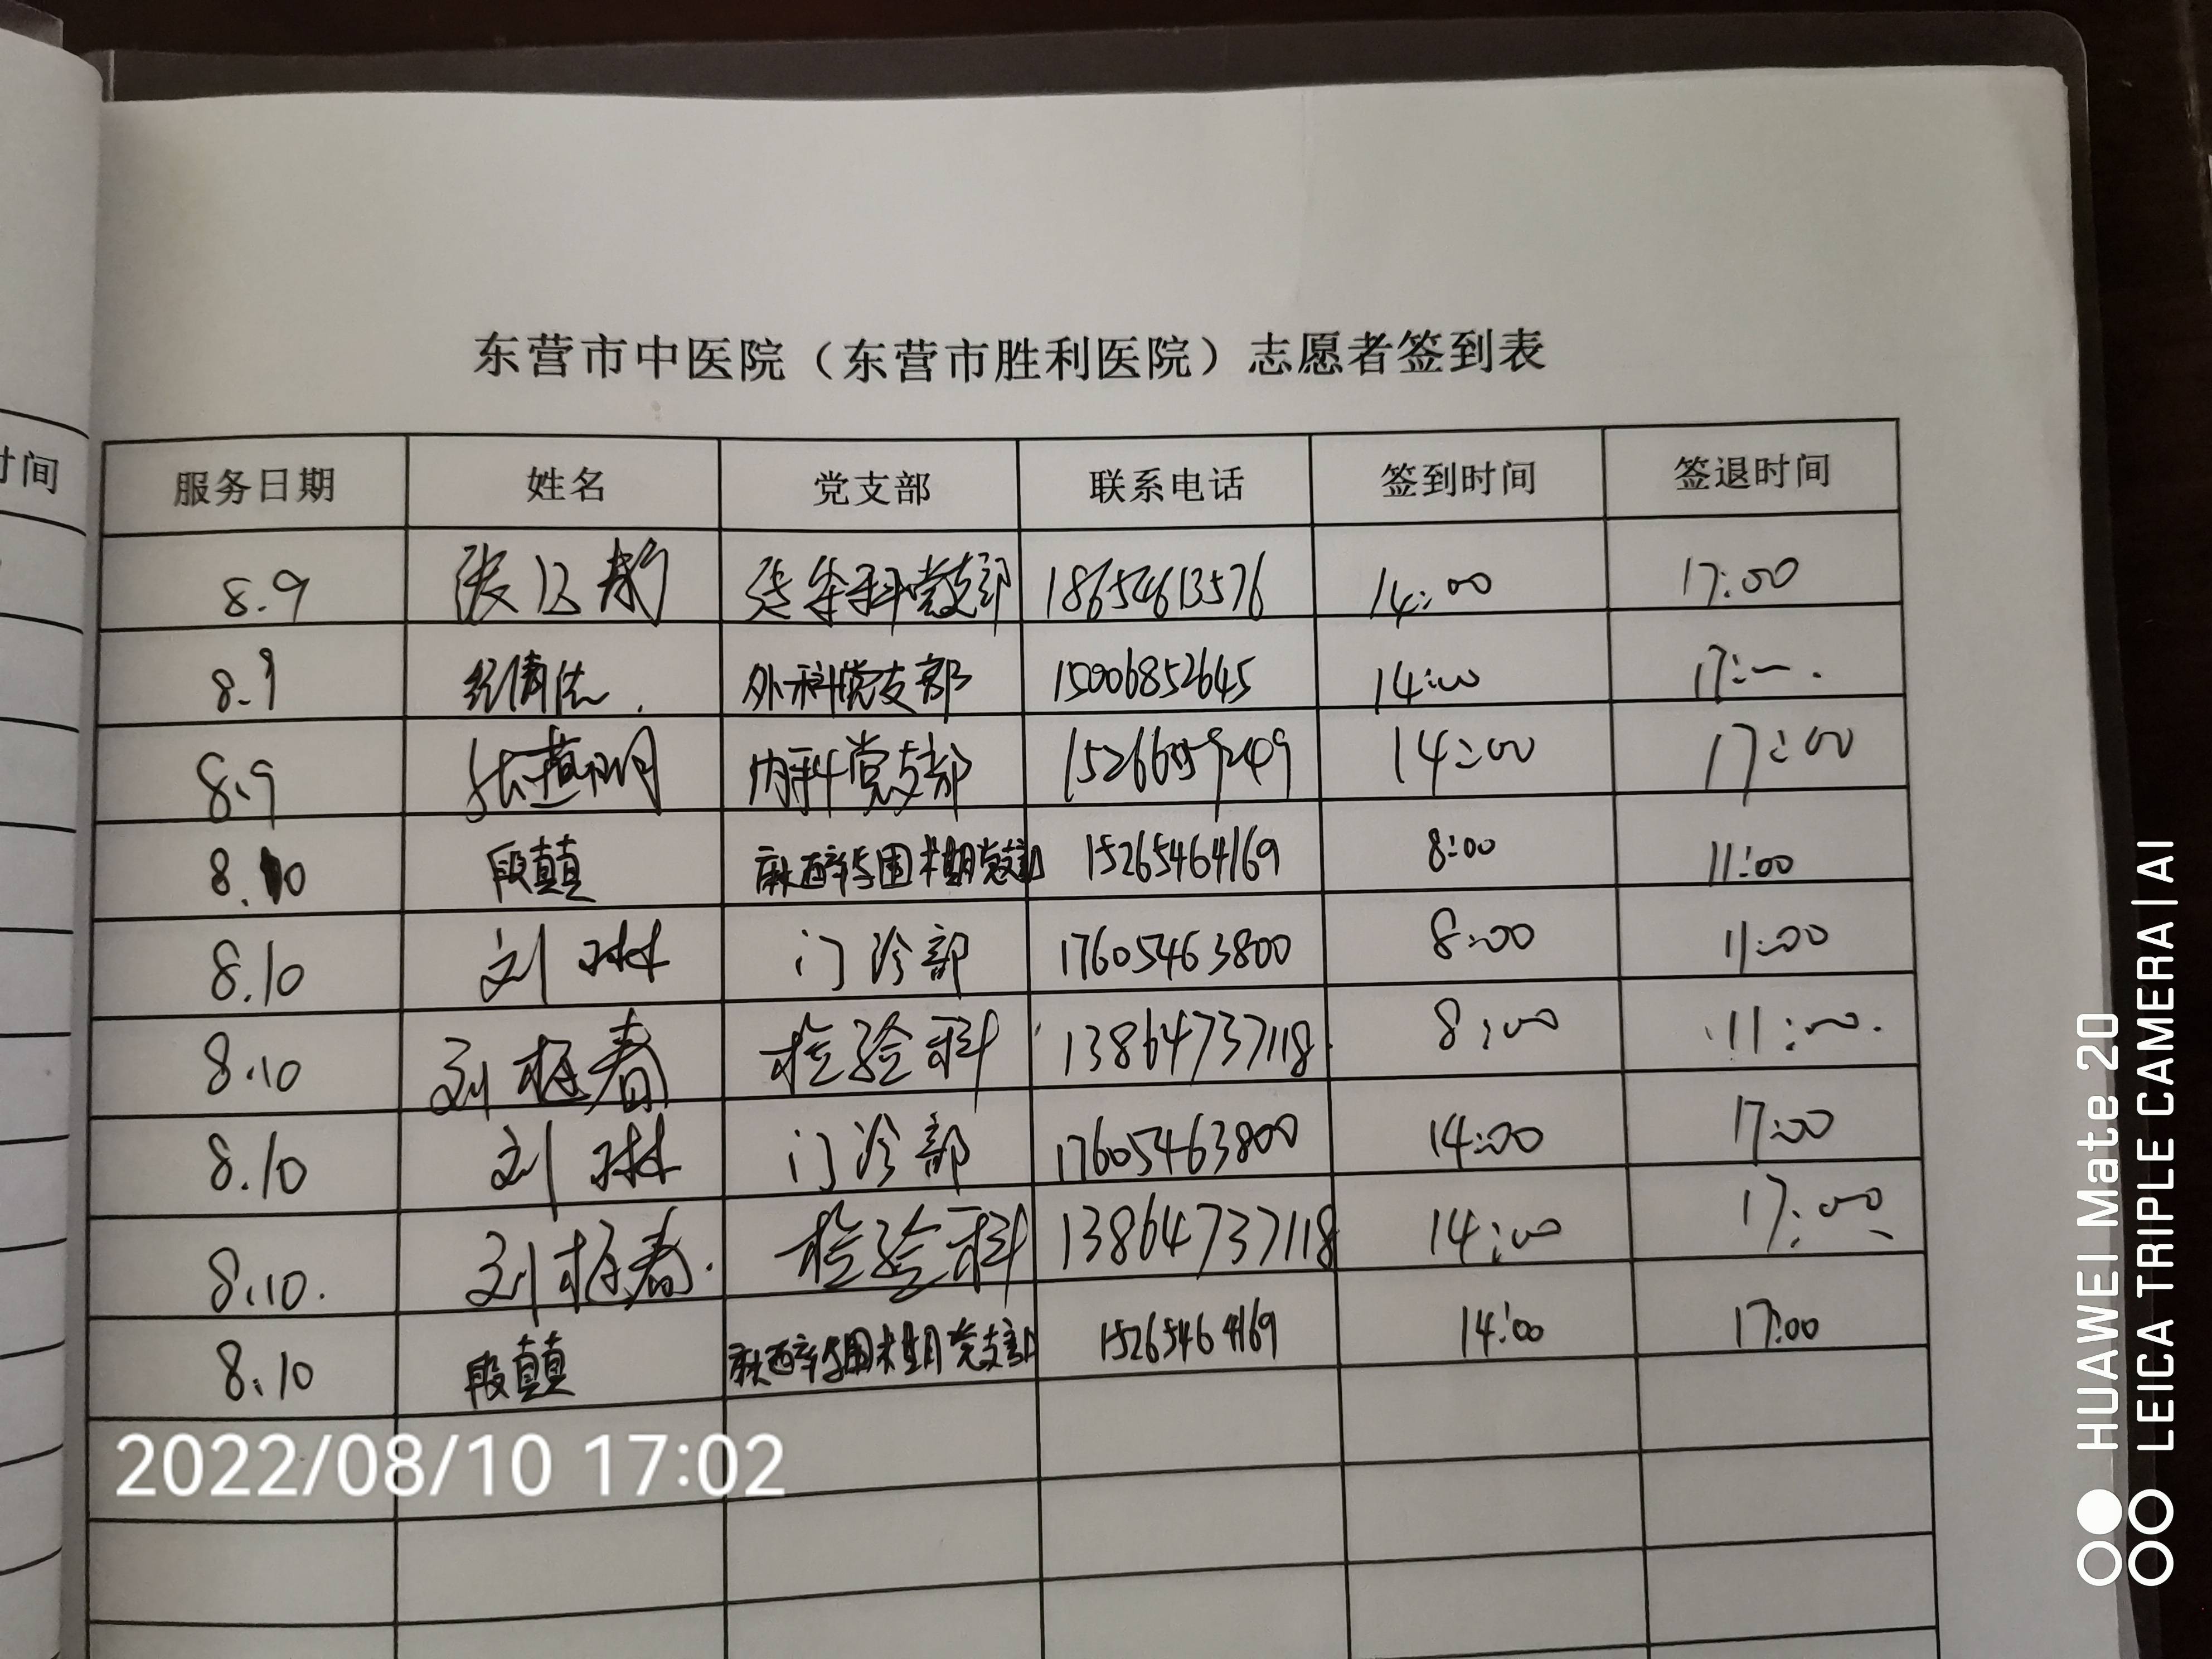 时间
东营市中医院（东营市胜利医院）志愿者签到表
服务日期 姓名 党支部 联系电话 签到时间 签退时间
8.9 张 科党支部 18654613576 14:00 17:00
8.9 外科党支部 15006852645 14:00 17:00
8.9 张 内科党支部 14:00 17:00
8.10 段颠 麻醉与围术期党支部 15265464169 8:00 11:00
8.10 刘琳 门诊部 17605463800 8:00 11:00
8.10 刘春 检验科 13864737118 8:00 11:00
8.10 刘琳 门诊部 17605463800 14:00 17:00
8.10. 刘春 检验科 13864737118 14:00 17:00
8.10 段颠 麻醉与围术期党支部 15265464169 14:00 17:00
2022/08/10 17:02
HUAWEI Mate 20
LEICA TRIPLE CAMERA | AI